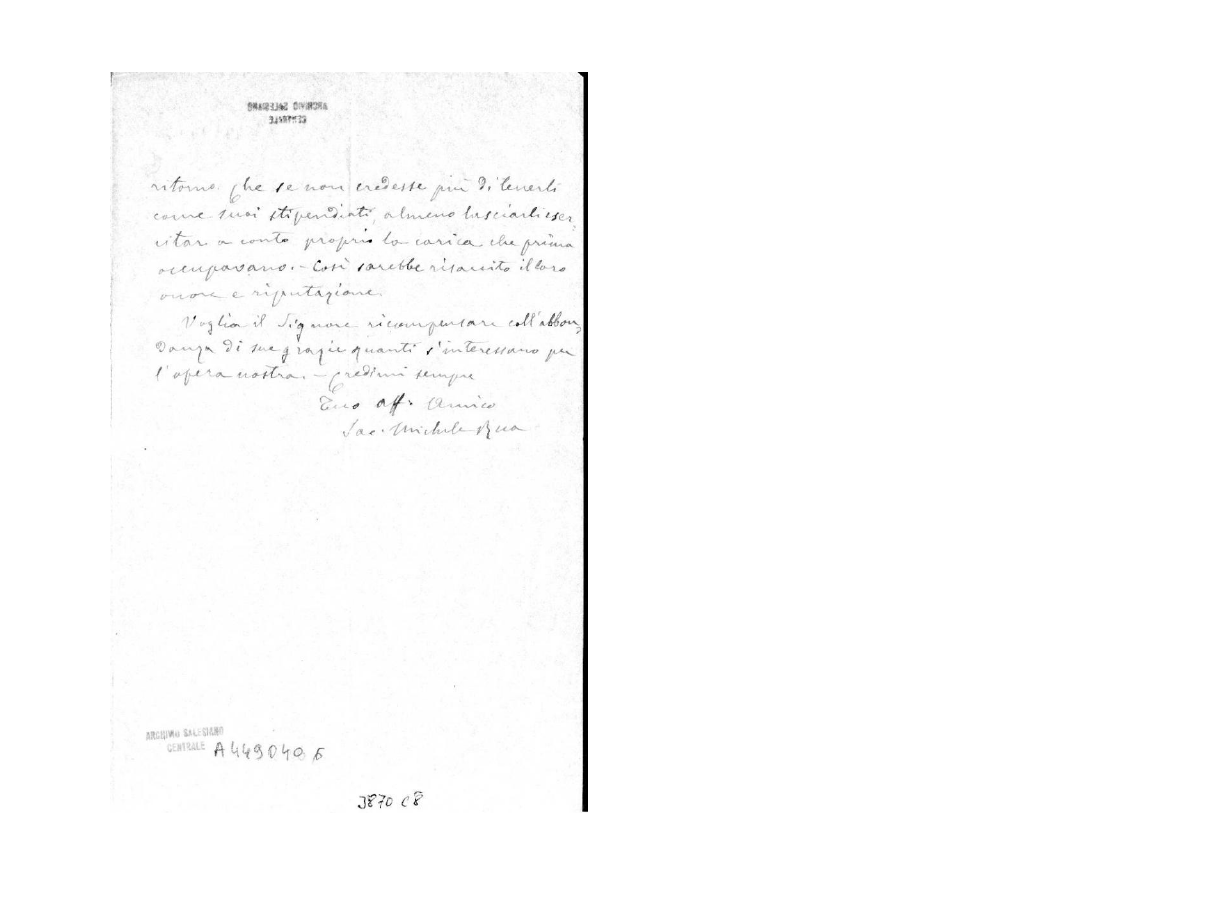 ARCHIVIO SALESIANO
CENTRALE
ritorno. Che se non credesse più di tenerli
come suoi stipendiati, almeno lasciarli eser=
citar a conto proprio la carica che prima
occupavano. - Così sarebbe risarcito il loro
onore e riputazione.
Voglia il Signore ricompensare coll'abbon=
danza di sue grazie quanti s'interessano per
l'opera nostra. - Credimi sempre
Tuo aff. Amico
Sac. Michele Rua
ARCHIVIO SALESIANO
CENTRALE A4490406
3870 C8